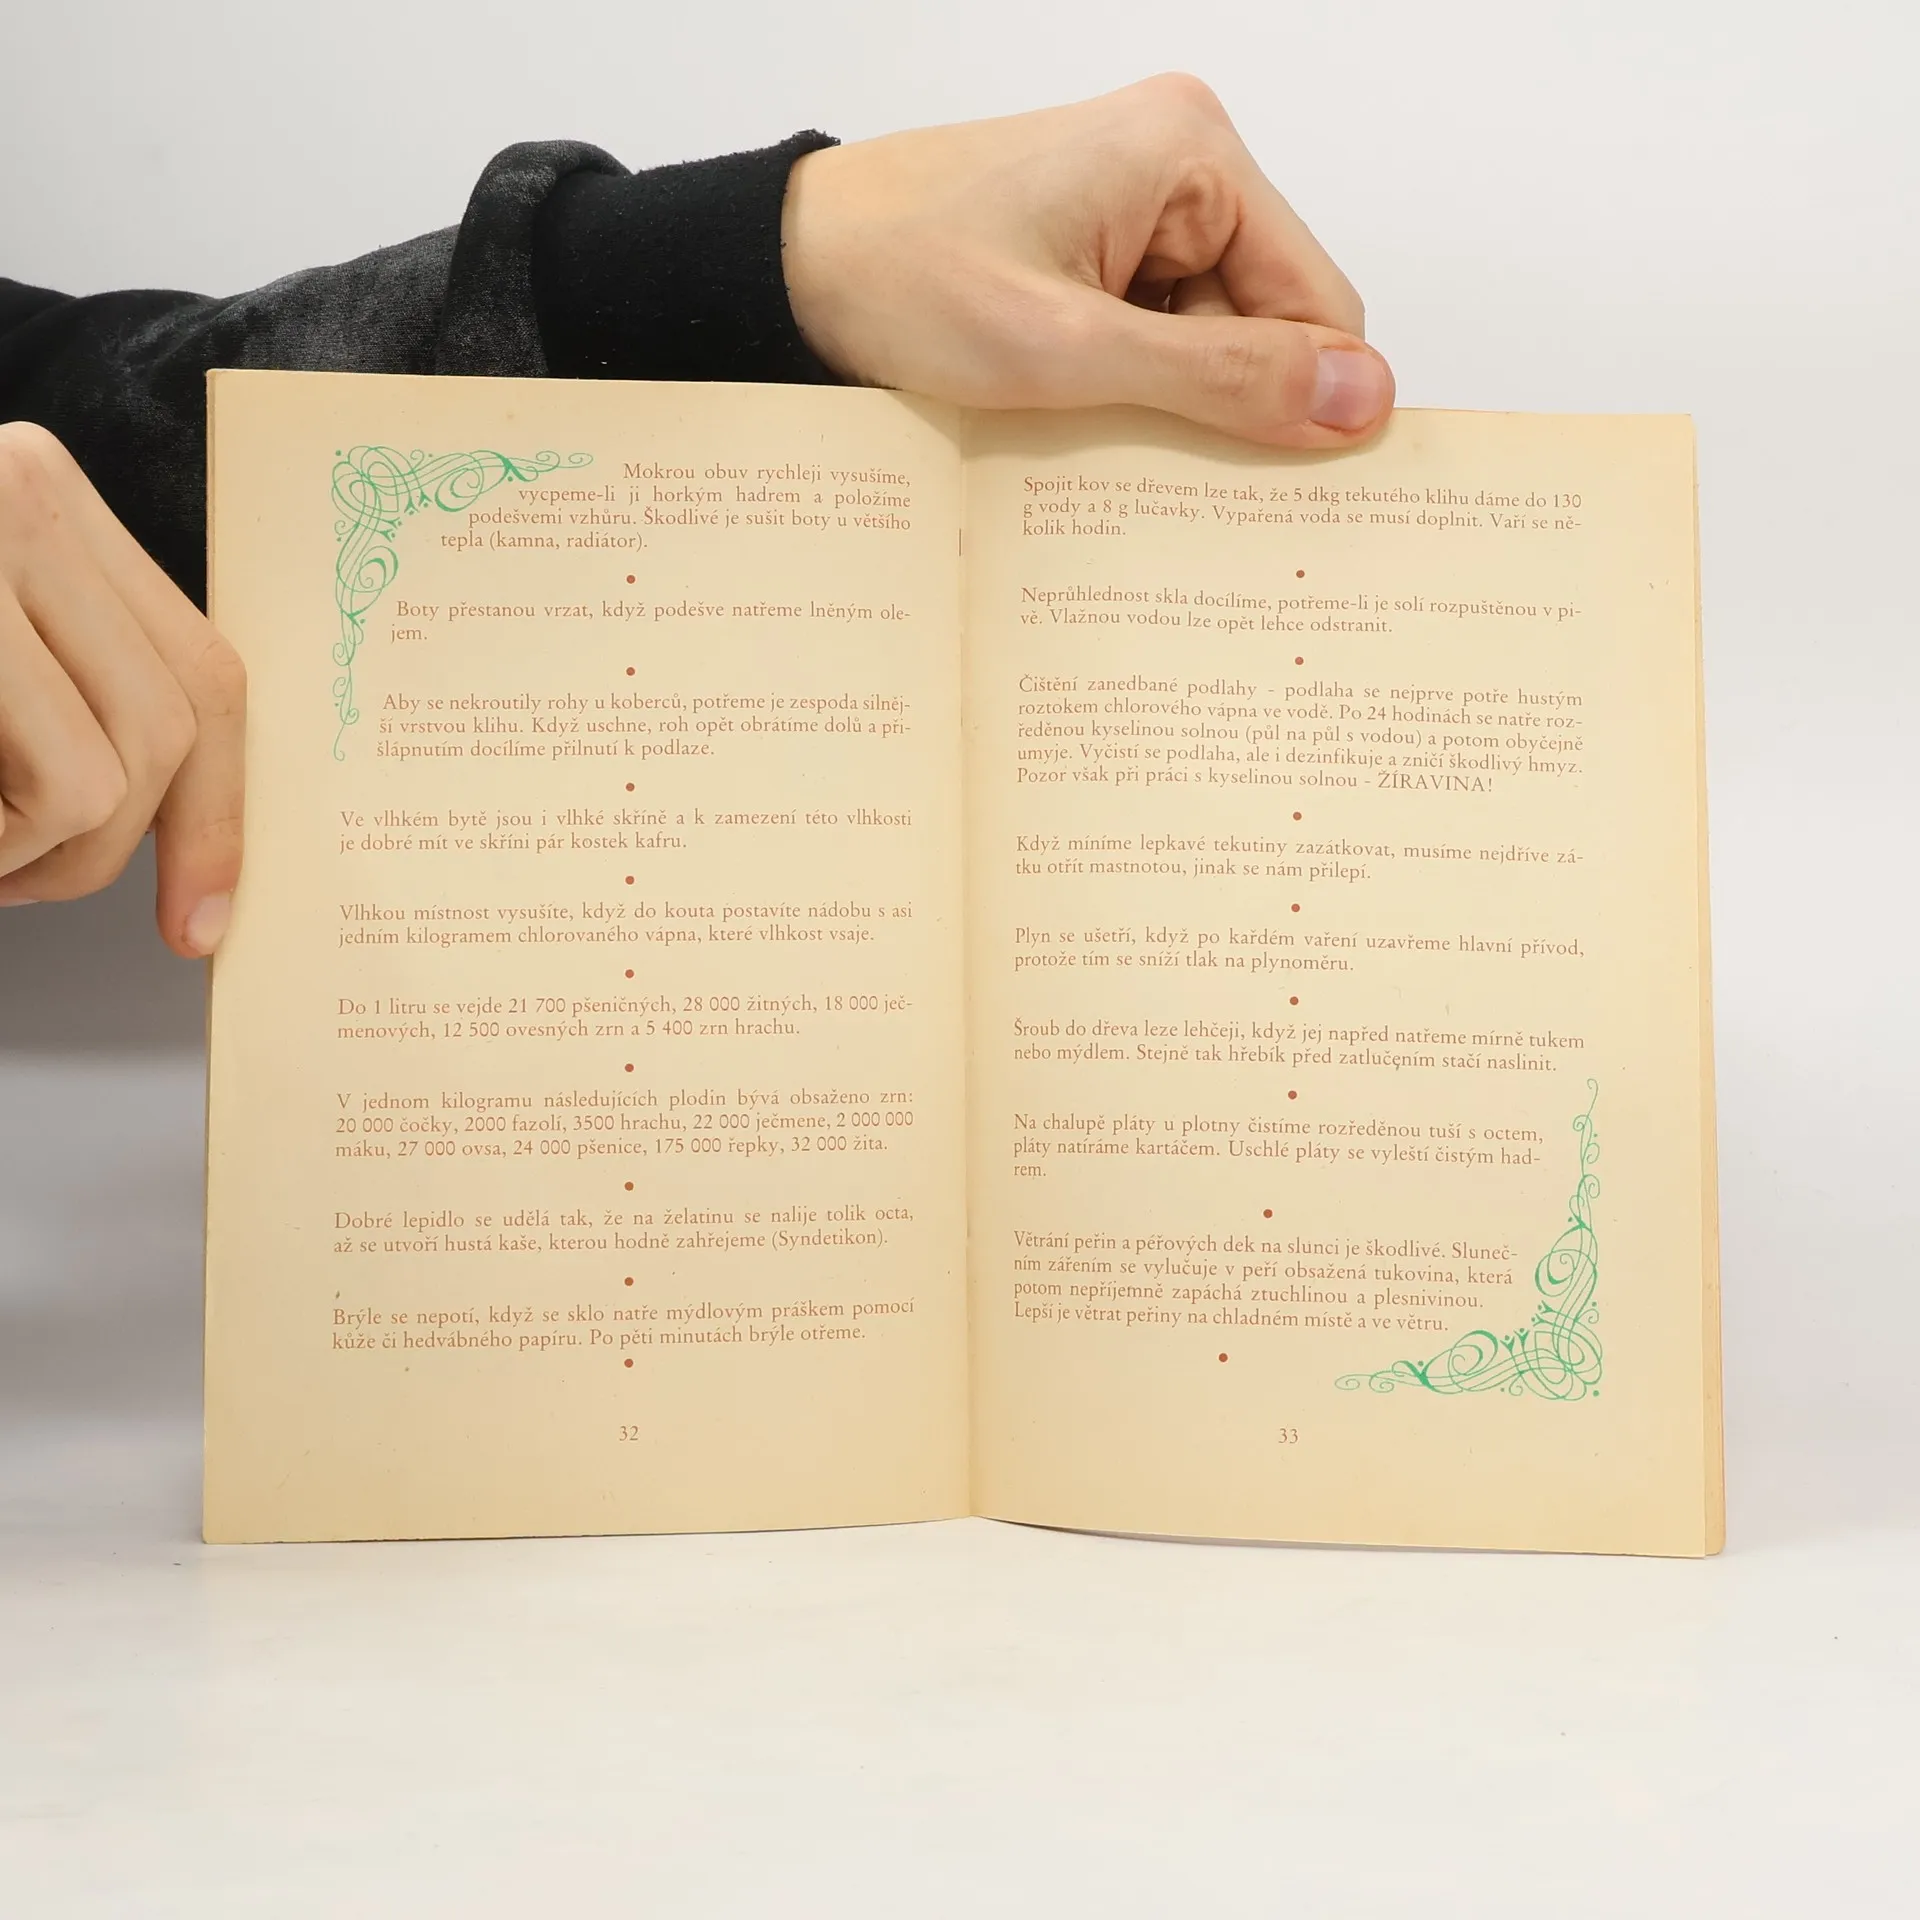 Mokrou obuv rychleji vysušíme,
vycpeme-li ji horkým hadrem a položíme
podešvemi vzhůru. Škodlivé je sušit boty u většího
tepla (kamna, radiátor).
Boty přestanou vrzat, když podešve natřeme lněným ole-
jem.
Aby se nekroutily rohy u koberců, potřeme je zespoda silněj-
ší vrstvou klihu. Když uschne, roh opět obrátíme dolů a při-
šlápnutím docílíme přilnutí k podlaze.
Ve vlhkém bytě jsou i vlhké skříně a k zamezení této vlhkosti
je dobré mít ve skříni pár kostek kafru.
Vlhkou místnost vysušíte, když do kouta postavíte nádobu s asi
jedním kilogramem chlorovaného vápna, které vlhkost vsaje.
Do 1 litru se vejde 21 700 pšeničných, 28 000 žitných, 18 000 ječ-
menových, 12 500 ovesných zrn a 5 400 zrn hrachu.
V jednom kilogramu následujících plodin bývá obsaženo zrn:
20 000 čočky, 2000 fazolí, 3500 hrachu, 22 000 ječmene, 2 000 000
máku, 27 000 ovsa, 24 000 pšenice, 175 000 řepky, 32 000 žita.
Dobré lepidlo se udělá tak, že na želatinu se nalije tolik octa,
až se utvoří hustá kaše, kterou hodně zahřejeme (Syndetikon).
Brýle se nepotí, když se sklo natře mýdlovým práškem pomocí
kůže či hedvábného papíru. Po pěti minutách brýle otřeme.
32
Spojit kov se dřevem lze tak, že 5 dkg tekutého klihu dáme do 130
g vody a 8 g lučavky. Vypařená voda se musí doplnit. Vaří se ně-
kolik hodin.
Neprůhlednost skla docílíme, potřeme-li je solí rozpuštěnou v pi-
vě. Vlažnou vodou lze opět lehce odstranit.
Čištění zanedbané podlahy - podlaha se nejprve potře hustým
roztokem chlorového vápna ve vodě. Po 24 hodinách se natře roz-
ředěnou kyselinou solnou (půl na půl s vodou) a potom obyčejně
umyje. Vyčistí se podlaha, ale i dezinfikuje a zničí škodlivý hmyz.
Pozor však při práci s kyselinou solnou - ŽÍRAVINA!
Když míníme lepkavé tekutiny zazátkovat, musíme nejdříve zá-
tku otřít mastnotou, jinak se nám přilepí.
Plyn se ušetří, když po kařdém vaření uzavřeme hlavní přívod,
protože tím se sníží tlak na plynoměru.
Šroub do dřeva leze lehčeji, když jej napřed natřeme mírně tukem
nebo mýdlem. Stejně tak hřebík před zatlučením stačí naslinit.
Na chalupě pláty u plotny čistíme rozředěnou tuší s octem,
pláty natíráme kartáčem. Uschlé pláty se vyleští čistým had-
rem.
Větrání peřin a péřových dek na slunci je škodlivé. Sluneč-
ním zářením se vylučuje v peří obsažená tukovina, která
potom nepříjemně zapáchá ztuchlinou a plesnivinou.
Lepší je větrat peřiny na chladném místě a ve větru.
33